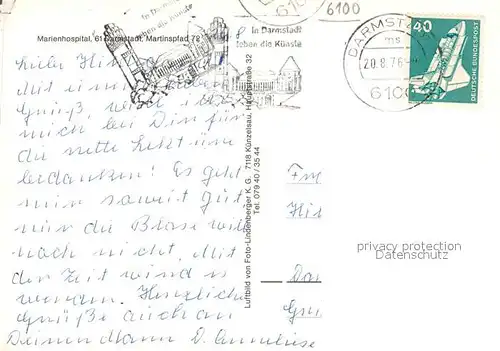 Marienhospital, 61 Darmstadt, Martinspfad 72
In Darmstadt
leben die Künste
In Darmstadt
leben die Künste
6100
DARMST
20.8.76
6100
40
DEUTSCHE BUNDESPOST
Mit einem
Gruß, will ich
mich bei Dir für
die nette Lektüre
bedanken! Es geht
mir soweit gut
nur die Blase will
noch nicht. Mit
der Zeit wird es
werden. Herzliche
Grüße auch an
Deinen Mann D. Anneliese
Luftbild von Foto-Lindenberger K. G., 7118 Künzelsau, Hauptstraße 32
Tel. 079 40 / 35 44
privacy protection
Datenschutz